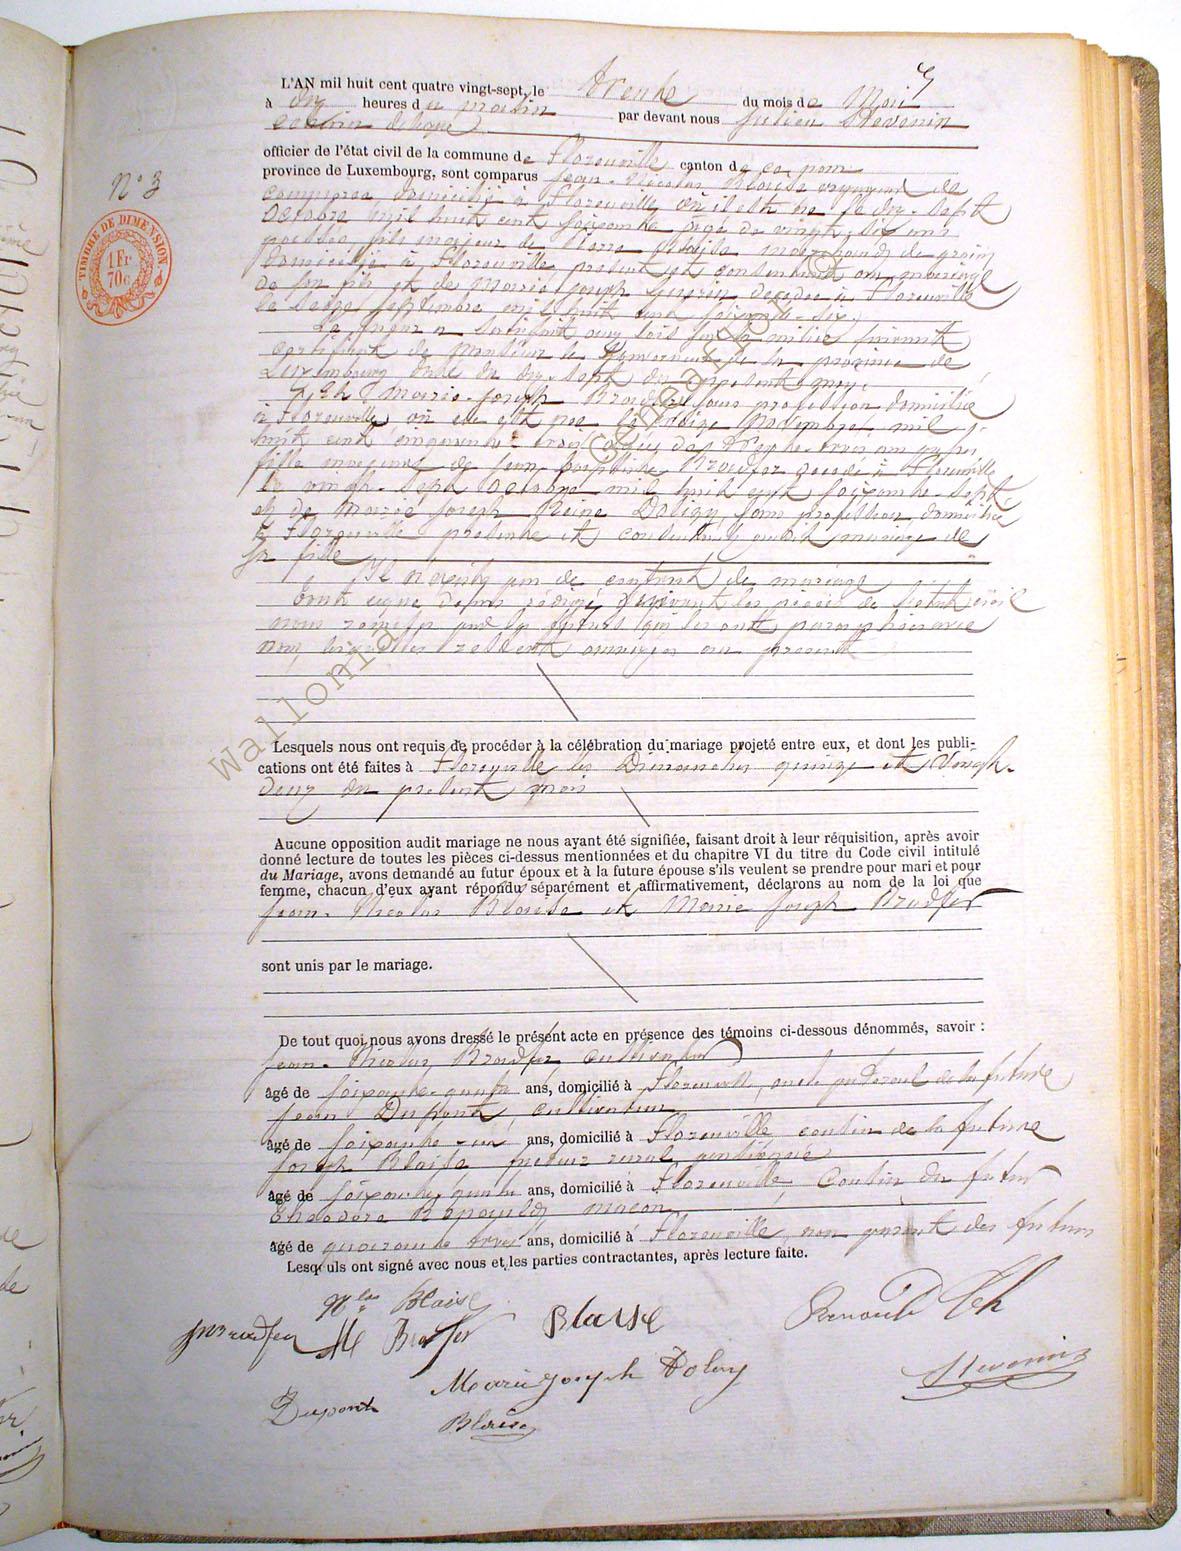 L'AN mil huit cent quatre vingt-sept, le trente du mois de Mai
à dix heures du matin par devant nous Julien Stevenin
échevin délégué
officier de l'état civil de la commune de Florenville canton de ce nom
N° 3
province de Luxembourg, sont comparus Jean-Nicolas Blaise voyageur de
commerce, domicilié à Florenville où il est né le dix-sept
Octobre mil huit cent soixante âgé de vingt six ans
passés, fils majeur de Pierre Blaise marchand de grain
domicilié à Florenville présent et consentant au mariage
de son fils et de Marie Joseph Guerin décédée à Florenville
le seize septembre mil huit cent soixante-six;
TIMBRE DE DIMENSION
1 Fr
70c
Le futur a satisfait aux lois sur la milice suivant
certificat de Monsieur le Gouverneur de la province de
Luxembourg en date du dix-sept du présent mois.
Et Marie-Joseph Bradfer sans profession domiciliée
à Florenville où elle est née le treize Novembre mil
huit cent cinquante trois âgée de trente-trois ans
fille majeure de Jean Baptiste Bradfer décédé à Florenville
le vingt-sept Octobre mil huit cent soixante-sept
et de Marie Joseph Reine sans profession domiciliée
à Florenville présente et consentant audit mariage de
sa fille
Il n'existe pas de contrat de mariage
les pièces de l'état civil
nous remises par les futurs qui les ont paraphées avec
nous, lesquelles restent annexées au présent
Lesquels nous ont requis de procéder à la célébration du mariage projeté entre eux, et dont les publi-
cations ont été faites à Florenville les Dimanches quinze et Vingt-
deux du présent mois
Aucune opposition audit mariage ne nous ayant été signifiée, faisant droit à leur réquisition, après avoir
donné lecture de toutes les pièces ci-dessus mentionnées et du chapitre VI du titre du Code civil intitulé
du Mariage, avons demandé au futur époux et à la future épouse s'ils veulent se prendre pour mari et pour
femme, chacun d'eux ayant répondu séparément et affirmativement, déclarons au nom de la loi que
Jean-Nicolas Blaise et Marie Joseph Bradfer
sont unis par le mariage.
De tout quoi nous avons dressé le présent acte en présence des témoins ci-dessous dénommés, savoir :
Jean-Nicolas Bradfer cultivateur
âgé de soixante-quatre ans, domicilié à Florenville, oncle paternel de la future
Jean Dupont, cultivateur
âgé de soixante-un ans, domicilié à Florenville cousin de la future
Joseph Blaise facteur rural pensionné
âgé de soixante quatre ans, domicilié à Florenville, Cousin du futur
Théodore maçon
âgé de quarante trois ans, domicilié à Florenville, non parent des futurs
Lesquels ont signé avec nous et les parties contractantes, après lecture faite.
Nlas Blaise
JNBradfer MJ Bradfer Blaise Renauld Th
Marie joseph Stevenin
Dupont
Blaise
Wallonia Genealogy